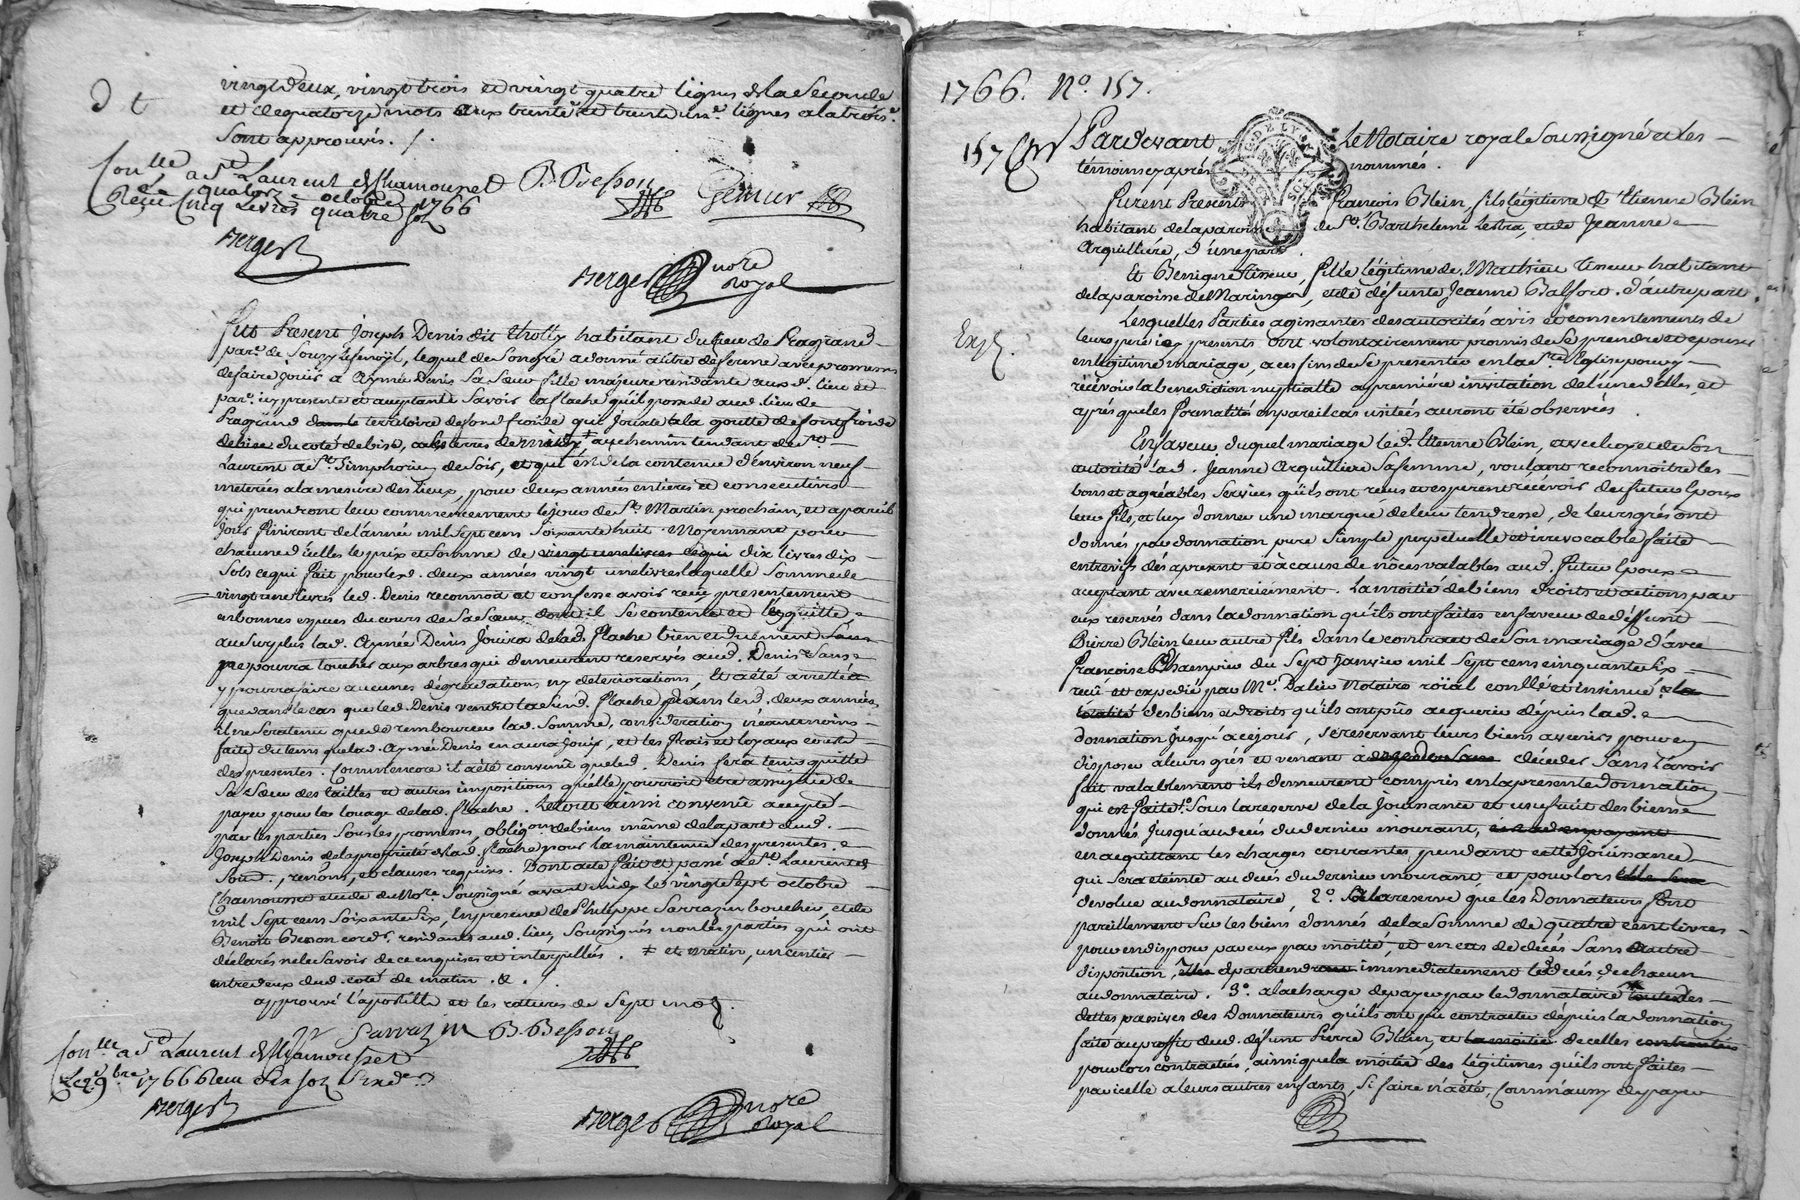 vingt deux, vingt trois et vingt quatre lignes de la Seconde
et de quatorze mots aux trente et trente un.e lignes a la trois.e
Sont approuvés. /.
Con.lle a S.t Laurent de Chamousset
Le quatorze octobre 1766
Reçu Cinq Livres quatre sol
Berger
B. Besson
Berger nore
royal
Fut Present Joseph Denis dit habitant du lieu de Pragrand
par.e de Souzy lequel de Son gré a donné a titre de ferme avec promesse
de faire Jouir a Aymée Denis Sa Sœur fille majeure residante aux d. lieu et
par.e icy presente et acceptante Savoir la flache qu'il possede aud. lieu de
Pragrand territoire de fond froide qui Jouxte la goutte de font froide
de bise du coté de bise, les terres de au chemin tendant de S.t
Laurent a S.t Simphorien de Soir, et qui est de la contenue d'environ neuf
meterées a la mesure des lieux, pour deux années entieres et consecutives
qui prendront leur commencement le jour de S.t Martin prochain, et a pareil
Jour finiront de l'année mil Sept cens soixante huit. Moyennant pour
chacune d'icelles le prix et Somme de vingt une livres dix livres dix
Sols ce qui fait pour les d. deux années vingt une livres laquelle Somme de
vingt une livres led. Denis reconnoit et confesse avoir reçu presentement
en bonnes especes du cours de Sa Sœur dont il Se contente et l'en quitte
au Surplus lad. Aymée Denis Jouira de lad. flache bien et duement Sans
pourra toucher aux arbres qui demeurent reservés aud. Denis Sans
y pourra faire aucunes dégradations ny déteriorations, Et a été arretté
que dans le cas que led. Denis vendit lad. flache dans led. deux années
il ne Sera tenu que de rembourcer lad. Somme, consideration néantmoins
faite du tems que lad. Aymée Denis en aura Joui, et les frais et loyaux couts
des presentes. Comm'encore il a été convenu que led. Denis Sera tenu quitte
Sa Sœur des tailles et autres impositions qu'elle pourroit etre assignée de
payer pour le louage de lad. flache. Le tout ainsi convenu accepté
par les parties Sous les promesses, oblig.ons de biens même de la part dud.
Joseph Denis de la proprieté de lad. flache pour la maintenue des presentes.
Soum., renon., et clauses requises. Dont acte fait et passé a S.t Laurent de
Chamousset etude du No.re Soussigné avant midy le vingt Sept octobre
mil Sept cens Soixante Six, En presence de Philippe Sarrazin boucher, et de
Benoit Besson cord.r residants aud. lieu, Soussignés non les parties qui ont
déclarés ne le Savoir de ce enquises et interpellés. ≠ et matin, un centier
entre deux dud. coté de matin. &. /.
approuvé l'apostille et les ratures de Sept mots.
Sarrazin B. Besson
Con.lle a S.t Laurent de Chamousset
Le 9.bre 1766
Berger
Berger nore
royal
1766. N.o 157.
157 Pardevant Le Notaire royal Soussigné et les
témoins cy après nommés.
Furent Presents François Blein, fils légitime d'Etienne Blein
habitant de la paroisse de S.t Barthelemi Lestra, et de Jeanne
Arquilliére, d'une part.
Et Benigne fille légitime de Mathieu habitant
de la paroisse de Maringes, et de défunte Jeanne Balfort. d'autre part.
Lesquelles Parties agissantes des autorités avis et consentements de
leurs pere icy presents ont volontairement promis de Se prendre et epouser
en légitime mariage, a ces fins de Se presenter en la S.te Eglise pour y
récevoir la benediction nuptialle a première invitation de l'une d'elles, et
aprés que les formalités en pareil cas usitées auront été observées.
Exp.
En faveur duquel mariage led. Etienne Blein, et avec luy et de Son
autorité lad. Jeanne Arquilliere Sa femme, voulant reconnoitre les
bons et agréables Services qu'ils ont reçus et esperent récévoir du futur Epoux
leur fils, et luy donner une marque de leur tendresse, de leurs grés ont
donnés par donnation pure Simple perpetuelle et irrevocable faite
entre vifs dés apresent et à cause de nôces valables aud. Futur Epoux
acceptant avec remerciement. La moitié de biens droits et actions par
eux reservés dans la donnation qu'ils ont faites en faveur de déffunt
Pierre Blein leur autre fils dans le contract de Son mariage d'avec
Françoise du Sept Janvier mil Sept cens cinquante Six
recû et expedié par M.e Dalin Notaire roïal conllé et insinué a la
totalité des biens et droits qu'ils ont pûs acquerir dépuis lad.
donnation Jusqu'a ce jour, se reservant leurs biens avenirs pour en
disposer a leurs grés et venant à décéder Sans l'avoir
fait valablement ils demeurent compris en la presente donnation
qui est faite 1.o Sous la reserve de la jouissance et usufruit des biens
donnés jusqu'au décés du dernier mourant,
en acquittant les charges courantes pendant cette Jouissance
qui Sera éteinte au decés du dernier mourant et pour lors elle Sera
devolue au donnataire, 2.o la reserve que les Donnateurs font
pareillement Sur les biens donnés de la Somme de quatre cent livres
pour en disposer par eux par moitié, et en cas de décés Sans autre
disposition, immediatement led. décés, de chacun
au donnataire. 3.o a la charge de payer par le donnataire toutes les
dettes passives des Donnateurs qu'ils ont pû contracter dépuis la donnation
faite au profit dud. défunt Pierre Blein, et la moitié de celles contractées
pour lors contractées, ainsi que la moitié des légitimes qu'ils ont faites
par icelle a leurs autres enfants, Si faire n'a été, Comm'aussy de payer